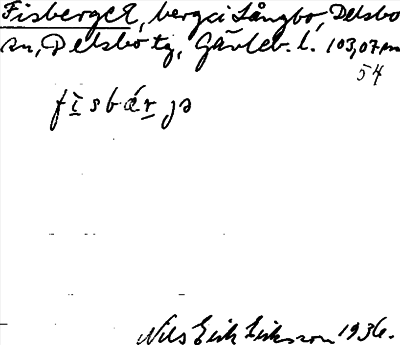 Fisberget, berg i Långbo, Delsbo
sn, Delsbo tg, Gävleb. l. 103,07 m
54
fìsbárjə
Nils Erik Eriksson 1936.